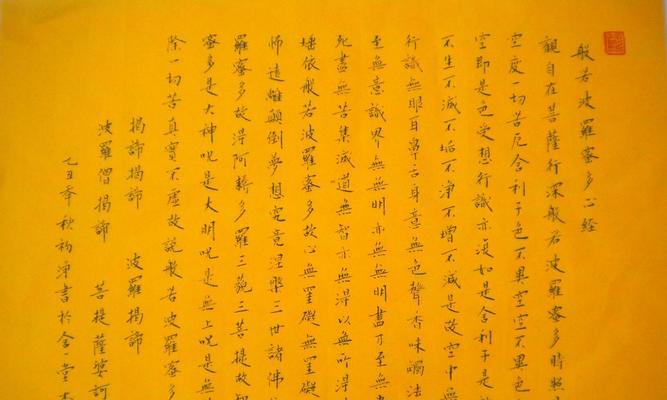 般若波羅蜜多心経
觀自在菩薩行深般若波羅蜜多時照
空度一切苦厄舍利子色不異空空不異色
空即是色受想行識亦復如是舍利子是
不生不滅不垢不淨不增不減是故空中無
行識無眼耳鼻舌身意無色聲香味觸法
至無意識界無無明亦無無明盡乃至無
死盡無苦集滅道無智亦無得以無所得
埵依般若波羅蜜多故心無罣礙無罣礙
怖遠離顛倒夢想究竟涅槃三世諸佛
羅蜜多故得阿耨多羅三藐三菩提故知
蜜多是大神呪是大明呪是無上呪是無
除一切苦真實不虛故說般若波羅蜜多
揭諦揭諦 波羅揭諦
波羅僧揭諦 菩提薩婆訶
乙丑年秋初淨書於金一堂